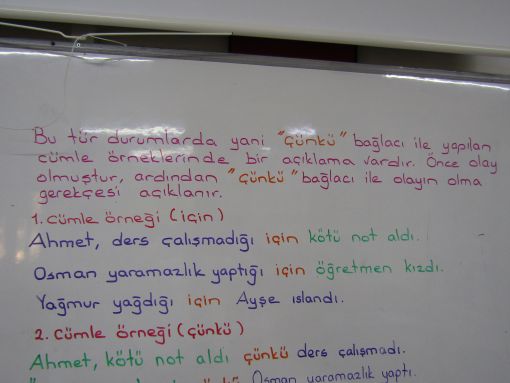 Bu tür durumlarda yani "çünkü" bağlacı ile yapılan
cümle örneklerinde bir açıklama vardır. Önce olay
olmuştur, ardından "çünkü" bağlacı ile olayın olma
gerekçesi açıklanır.
1. cümle örneği (için)
Ahmet, ders çalışmadığı için kötü not aldı.
Osman yaramazlık yaptığı için öğretmen kızdı.
Yağmur yağdığı için Ayşe ıslandı.
2. cümle örneği (çünkü)
Ahmet, kötü not aldı çünkü ders çalışmadı.
Osman yaramazlık yaptı.